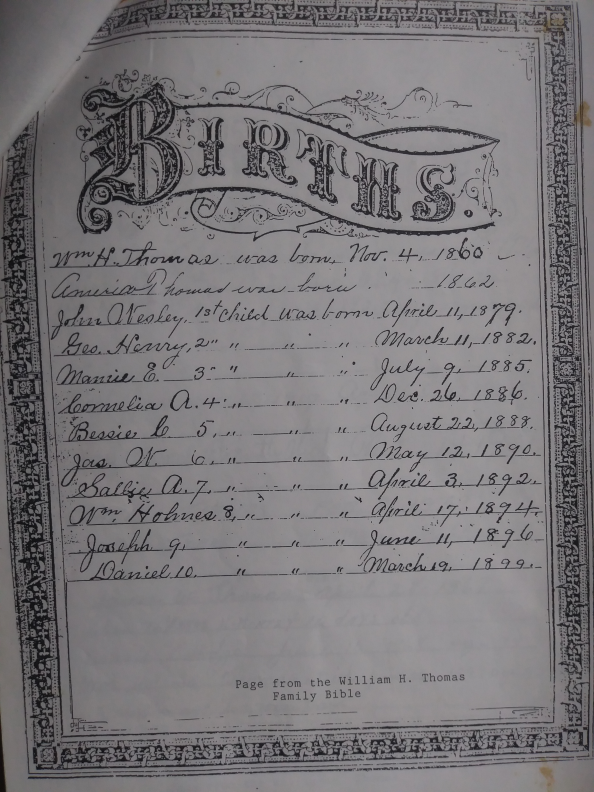 BIRTHS.
Wm H. Thomas was born, Nov. 4, 1860
America Thomas was born 1862
John Wesley, 1st child was born April 11, 1879.
Geo. Henry, 2" " " " March 11, 1882.
Mamie E. 3" " " " July 9, 1885.
Cornelia A. 4" " " " Dec. 26, 1886.
Bessie C 5, " " " August 22, 1888.
Jas. W. 6, " " " May 12, 1890.
Sallie A. 7, " " " April 3, 1892.
Wm Holmes 8, " " " April 17, 1894.
Joseph 9, " " " June 11, 1896
Daniel 10. " " " March 19, 1899.
Page from the William H. Thomas
Family Bible